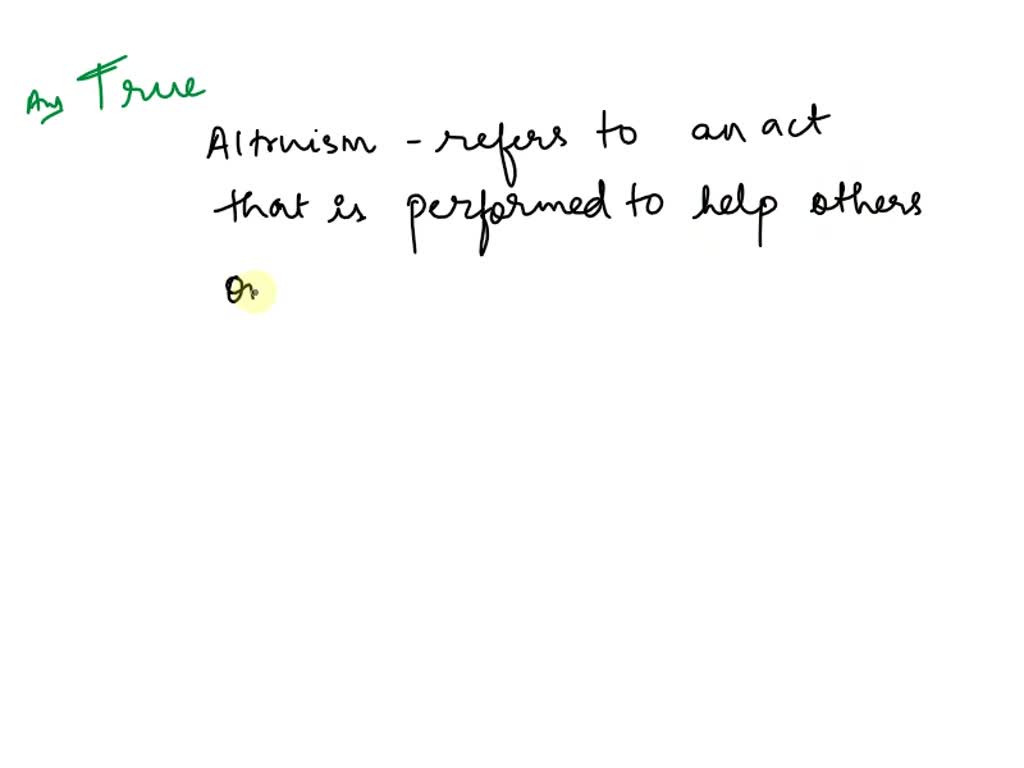 Ans True
Altruism - refers to an act
that is performed to help others
or